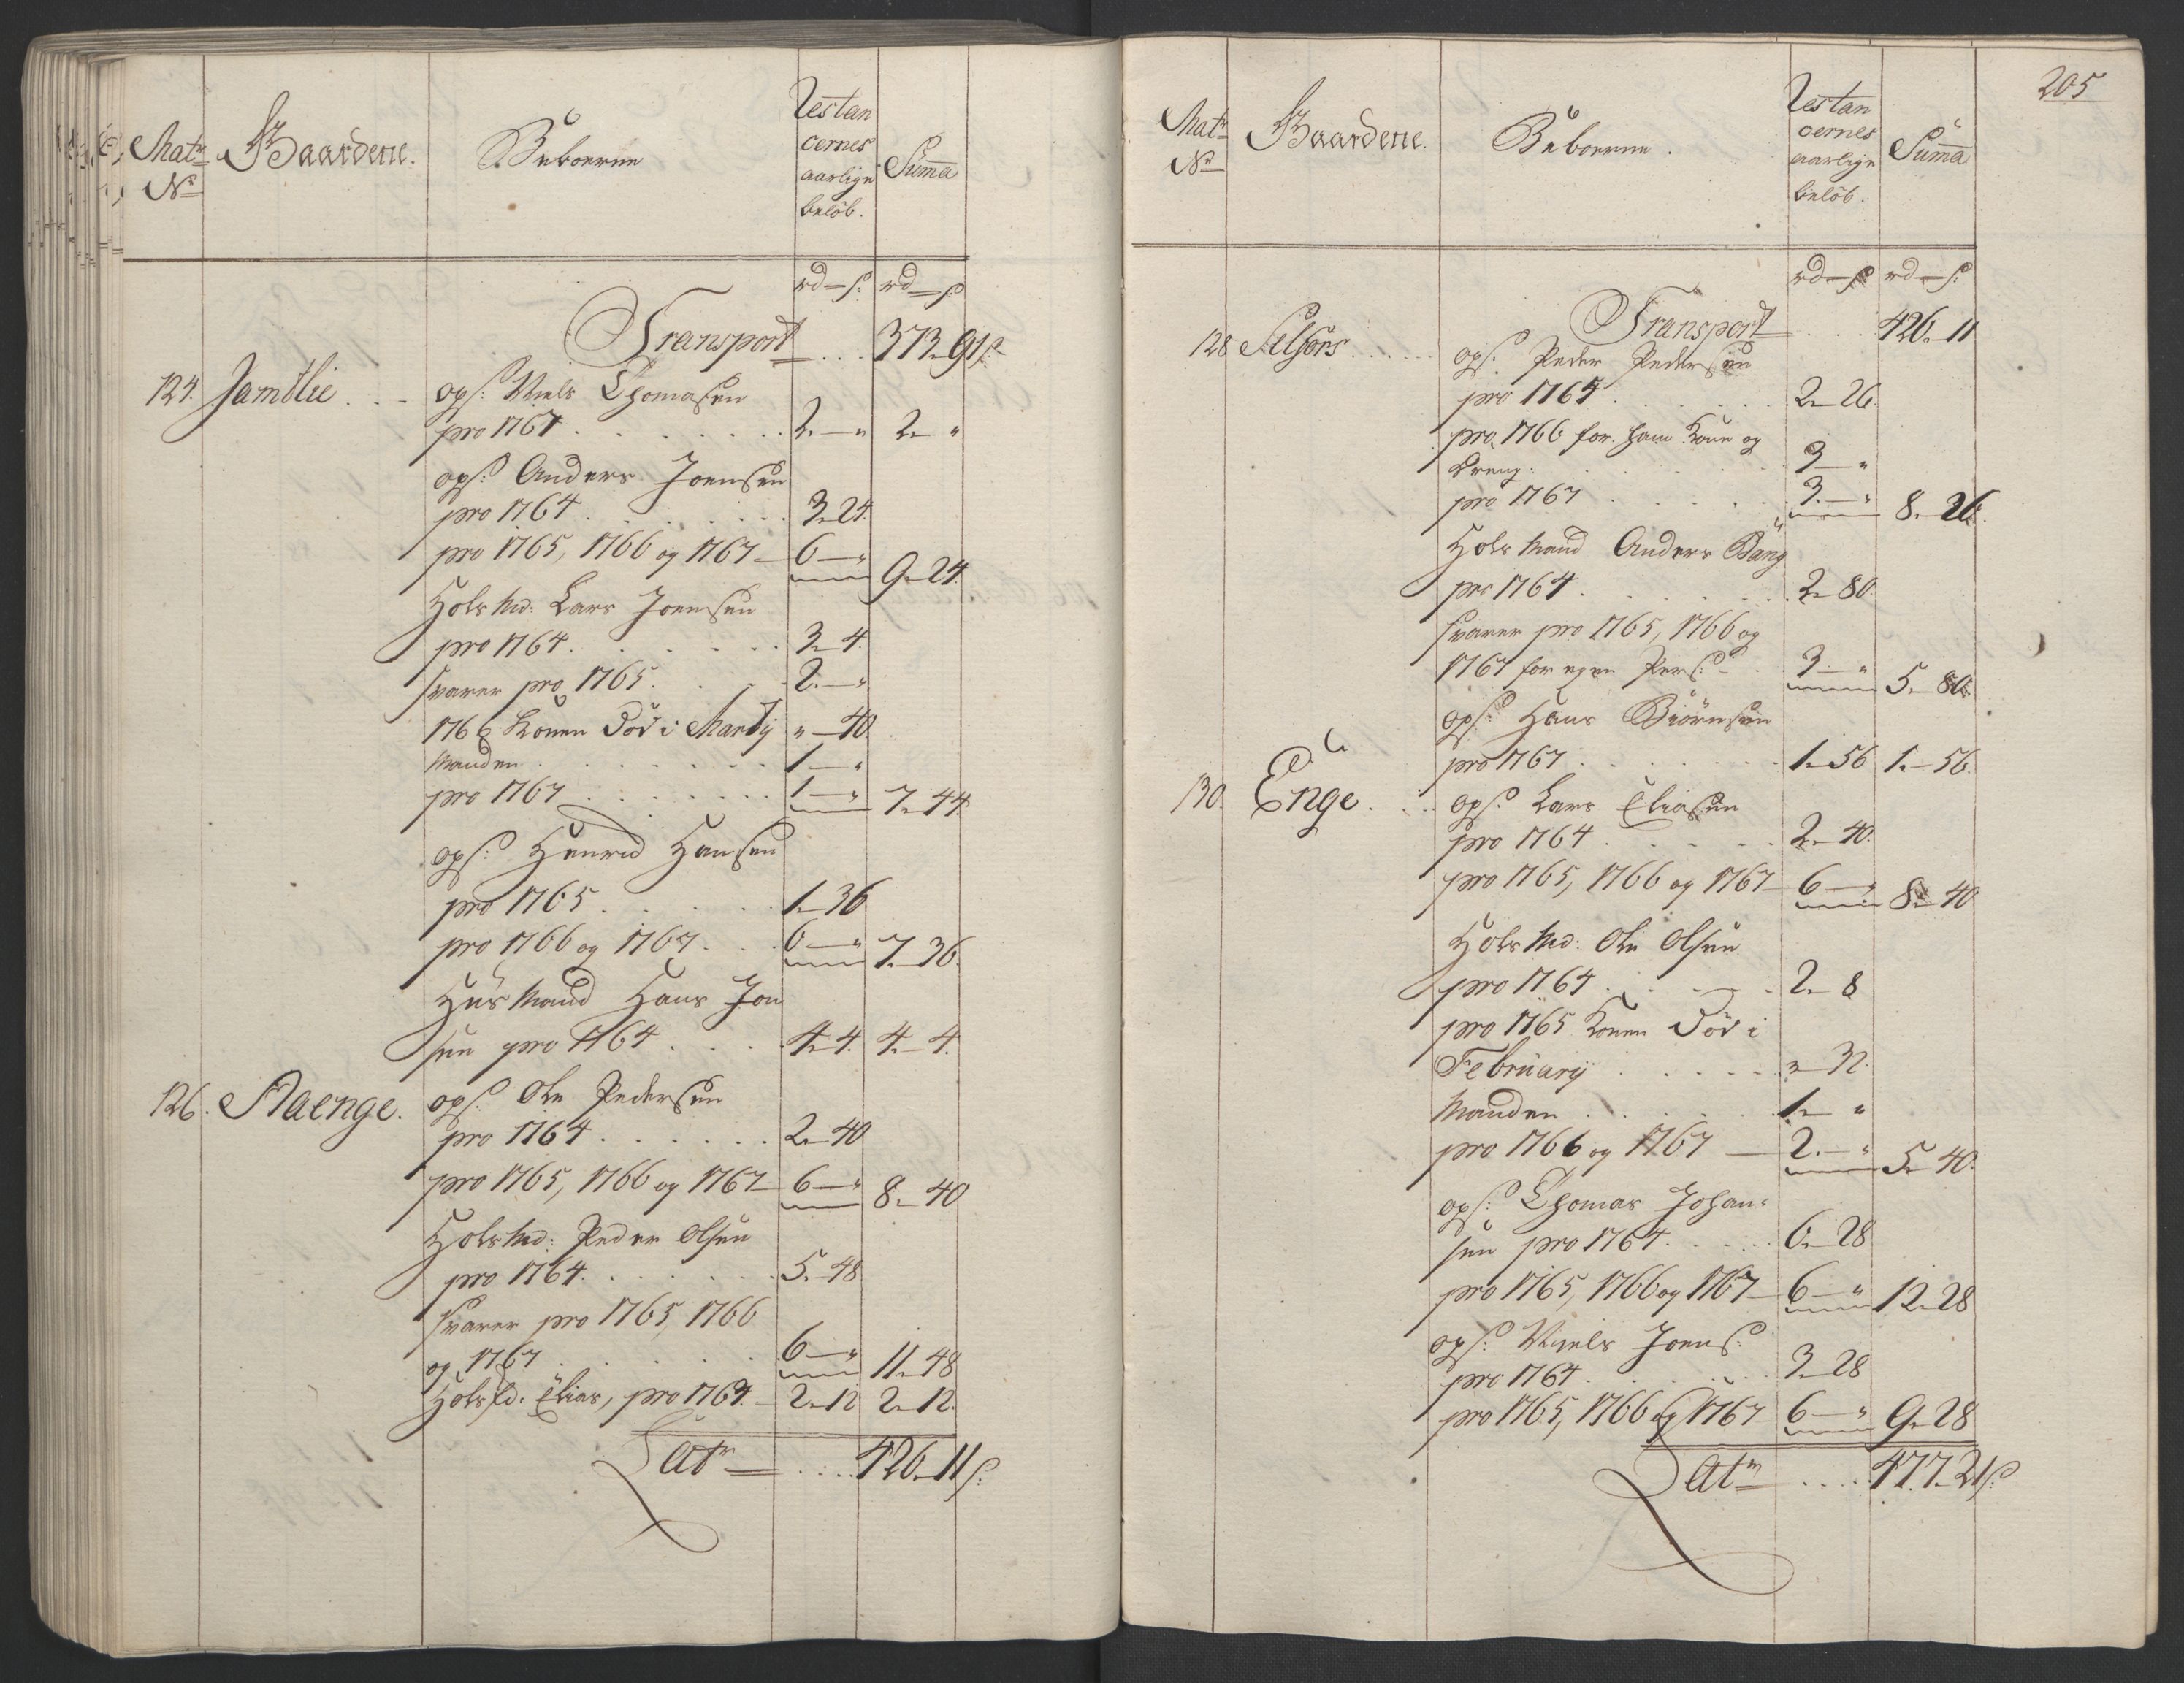 Matr
No
Gaardene.
Beboerne
Restan
cernes
aarlige
beløb.
Summa
rd — s. rd — s.
Transport . . . 373 - 91 s.
124. Jamtlie . . . ops. Niels Thomasen
pro 1767 . . . 2 - " 2 - "
ops. Anders Joensen
pro 1764 . . . 3 - 24.
pro 1765, 1766 og 1767 - 6 - " 9 - 24.
Hols Md: Lars Joensen
pro 1764 . . . 3 - 4.
svarer pro 1765 . . . 2 - "
1766 Konen död i Martij " - 40
Manden . . . 1 - "
pro 1767 . . . 1 - " 7 - 44.
ops. Henrich Hansen
pro 1765 . . . 1 - 36
pro 1766 og 1767 . . . 6 - " 7 - 36.
Huus Mand Hans Jon
sen pro 1764 . . . 4 - 4. 4 - 4.
126. Staenge. ops. Ole Pedersen
pro 1764 . . . 2 - 40
pro 1765, 1766 og 1767 - 6 - " 8 - 40
Hols Md: Peder Olsen
pro 1764 . . . 5 - 48
svarer pro 1765, 1766
og 1767 . . . 6 - " 11 - 48
Hols Elias, pro 1764. - 2 - 12 2 - 12.
Latr . . . 426 - 11 s.
205
Matr
No
Gaardene.
Beboerne.
Restan
cernes
aarlige
beløb.
Summa
rd — s rd — s.
Transport . . . 426 - 11
128 Selfors . . . ops. Peder Pedersen
pro 1764 . . . 2 - 26.
pro 1766 for ham Kone og
Dreng. . . . 3 - "
pro 1767 . . . 3 - " 8 - 26.
Hols Mand Anders Bang
pro 1764 . . . 2 - 80.
svarer pro 1765, 1766 og
1767 for egen Pers. . . 3 - " 5 - 80.
ops. Hans Biörnsen
pro 1767 . . . 1 - 56 1 - 56.
130. Enge . . . ops. Lars Eliasen
pro 1764 . . . 2 - 40.
pro 1765, 1766 og 1767 - 6 - " 8 - 40
Hols Md: Ole Olsen
pro 1764 . . . 2 - 8
pro 1765 Konen död i
February . . . " - 32.
Manden . . . 1 - "
pro 1766 og 1767 — 2 - " 5 - 40.
ops. Thomas Johan-
sen pro 1764 . . . 6 - 28
pro 1765, 1766 og 1767 - 6 - " 12 - 28
ops. Niels Joens.
pro 1764 . . . 3 - 28
pro 1765, 1766 og 1767 6 - " 9 - 28
Latr . . . 477 - 21 s.